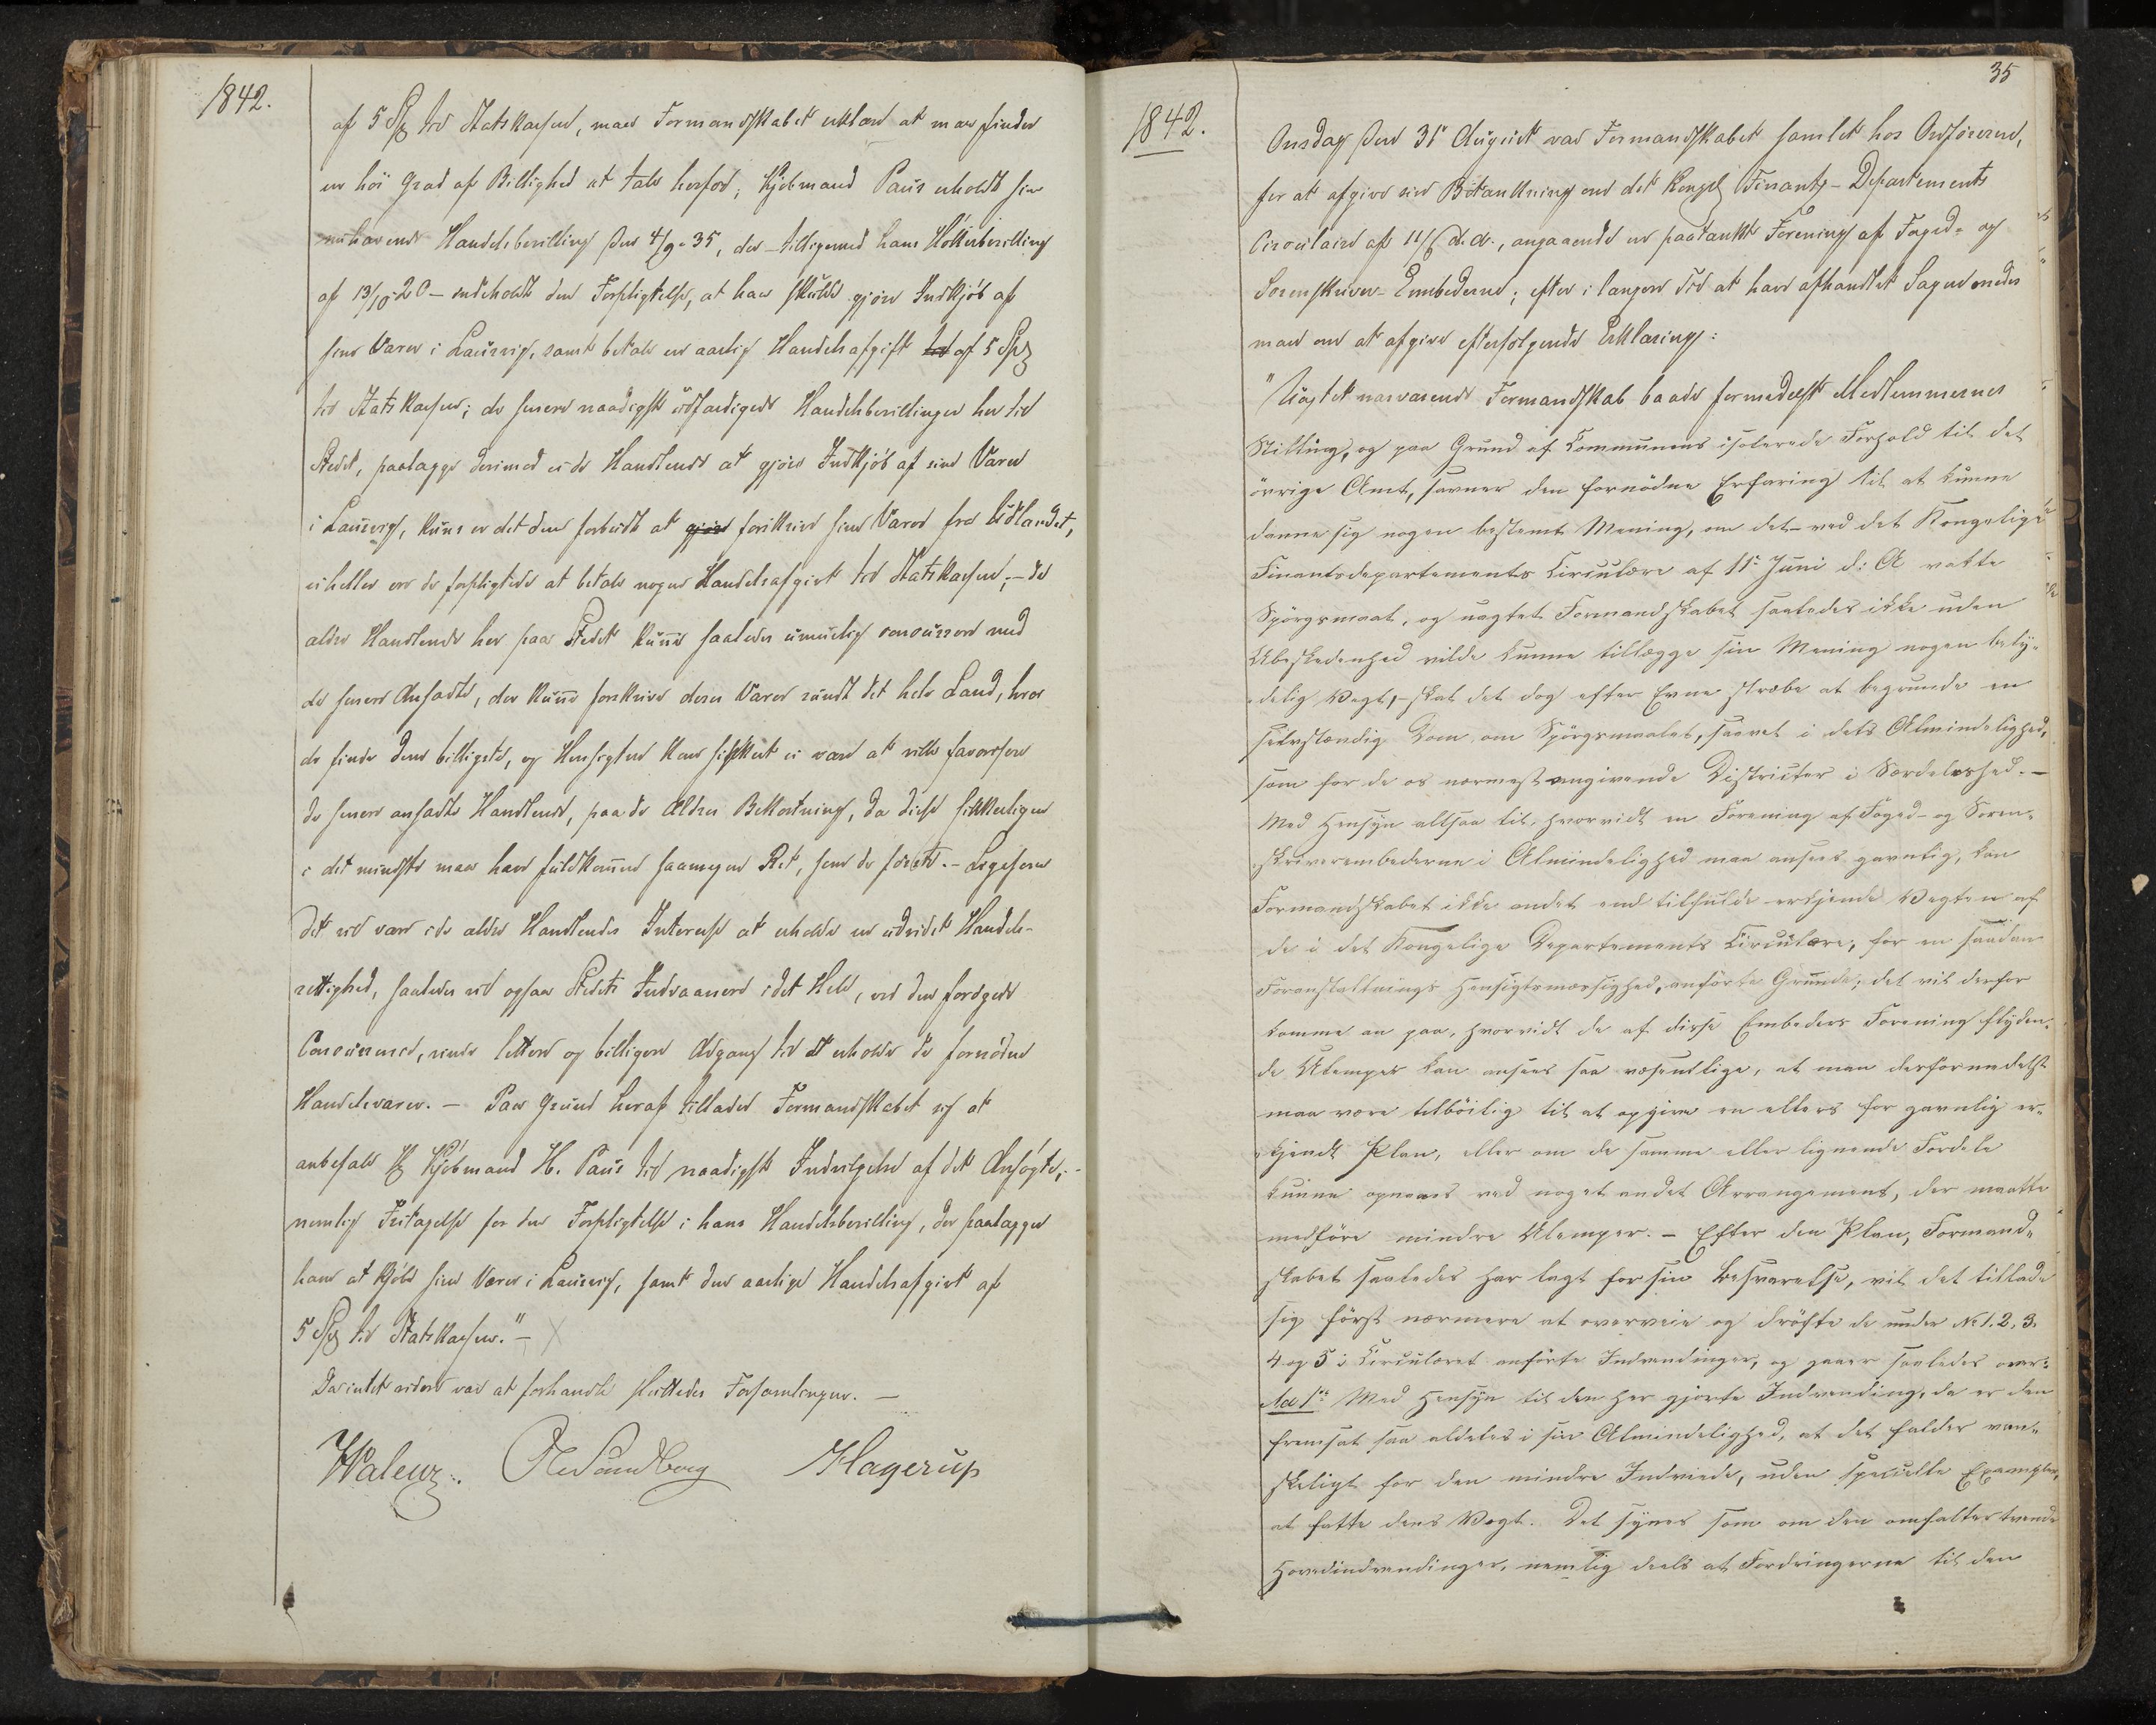 1842.
af 5 Spd til Statskassen, maa Formandskabet erklære at man finder
en höi Grad af Billighed at tale herfor; Kjöbmand Paus erholdt sin
nuhavende Handelsbevilling den 4/9-35, der tilligemed hans Höllerbevilling
af 13/10-20 - indeholdt den Forpligtelse, at han skulde gjöre Indkjöb af
sine Varer i Laurvig, samt betale en aarlig Handelsafgift til af 5 Spd
til Statskassen; de senere naadigst udfærdigede Handelsbevillinger her til
Stedet, paalægge derimod ei de Handlende at gjöre Indkjöb af sine Varer
i Laurvig, kuns er det dem forbudt at gjöre forskrive sine Varer fra Udlandet,
ei heller ere de forpligtede at betale nogen Handelsafgivt til Statskassen; - de
ældre Handlende her paa Stedet kunne saaledes umuelig concurrere med
de senere Ansatte, der kunne forskrive deres Varer rundt det hele Land, hvor
de finde dem billigste, og Hensigten kan sikkert ei være at ville favorisere
de senere ansatte Handlende, paa de Ældres Bekostning, da disse sikkerligen
i det mindste maa have fuldkommen saamegen Ret, som de förste. - Ligesom
det vil være i de ældre Handlendes Interesse at erholde en udvidet Handels-
rettighed, saaledes vil ogsaa Stedets Indvaanere i det Hele, ved den forögede
Concurrence, vinde lettere og billigere Adgang til at erholde de fornödne
Handelsvarer. - Paa Grund heraf tillader Formandskabet sig at
anbefale Hr Kjöbmand H. Paus til naadigst Indvilgelse af det Ansögte; -
nemlig Fritagelse for den Forpligtelse i hans Handelsbevilling, der paalægger
ham at kjöbe sine Varer i Laurvig, samt den aarlige Handelsafgivt af
5 Spd til Statskassen." -
Da intet videre var at forhandle sluttedes Forsamlingen. -
Ole Sundborg Hagerup
35
1842.
Onsdag den 31 August var Formandskabet samlet hos Ordföreren,
for at afgive sin Betænkning om det Kongel Finants-Departements
Circulaire af 11/6 d. A., angaaende en paatænkt Forening af Foged- og
Sorenskriver-Embederne; efter i længere Tid at have afhandlet Sagen enedes
man om at afgive efterfölgende Erklæring:
"Uagtet nærværende Formandskab baade formedelst Medlemmernes
Stilling, og paa Grund af Communens isolerede Forhold til det
övrige Amt, savner den fornödne Erfaring til at kunne
danne sig nogen bestemt Mening, om det - ved det Kongelige
Finantsdepartements Circulære af 11 Juni d: A vakte
Spörgsmaal, og uagtet Formandskabet saaledes ikke uden
Ubeskedenhed vilde kunne tillægge sin Mening nogen bety-
delig Vægt, - skal det dog efter Evne stræbe at begrunde en
selvstændig Dom om Spörgsmaalet, saavel i dets Almindelighed,
som for de os nærmest omgivende Districter i Særdeleshed. -
Med Hensyn altsaa til, hvorvidt en Forening af Foged- og Soren-
skriverembederne i Almindelighed maa ansees gavnlig, kan
Formandskabet ikke andet end tilfulde erkjende Vægten af
de i det Kongelige Departements Circulære, for en saadan
Foranstaltnings Hensigtsmæssighed, anförte Grunde; det vil derfor
komme an paa, hvorvidt de af disse Embeders Forening flyden-
de Ulemper kan ansees saa væsentlige, at man derformedelst
maa være tilböilig til at opgive en ellers for gavnlig er-
kjendt Plan, eller om de samme eller lignende Fordele
kunne opnaaes ved noget andet Arrangement, der maatte
medföre mindre Ulemper. - Efter den Plan, Formand-
skabet saaledes har lagt for sin Besvarelse, vil det tillade
sig först nærmere at overveie og dröfte de under No 1. 2. 3.
4 og 5 i Circulæret anförte Indvendinger, og gaaer saaledes over:
Ad 1o Med Hensyn til den her gjorte Indvending, da er den
fremsat saa aldeles i sin Almindelighed, at det falder van-
skeligt for den mindre Indviede, uden specielle Exempler,
at fatte dens Vægt. Det synes som om den omfatter tvende
Hovedindvendinger, nemlig deels at Fordringerne til den